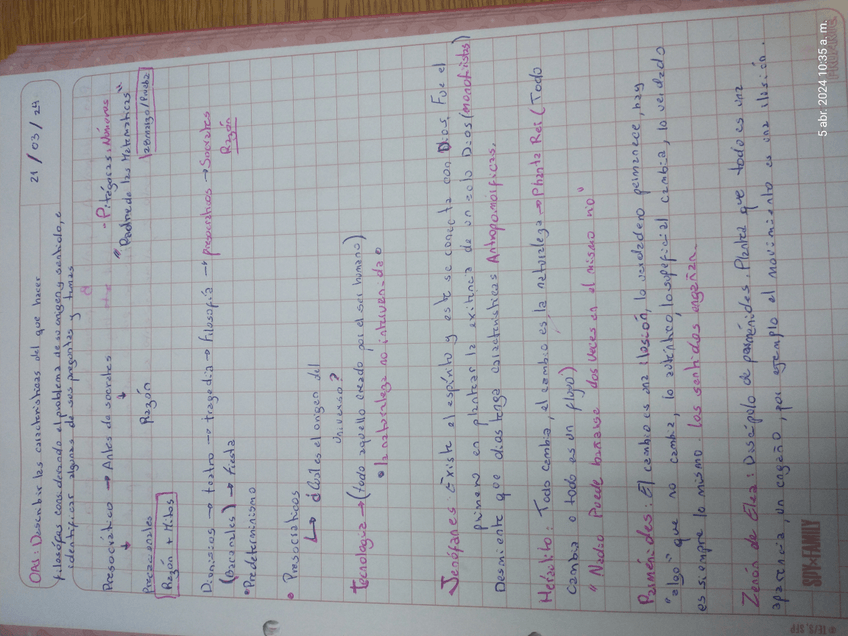 21 / 03 / 24
OA5: Describir las características del que hacer
filosófas considerando el problema de su origen y sentido, e
identificar algunas de sus preguntas y temas
Presocrático → Antes de socrates
- Pitágoras: Números
"Padre de las Matemáticas"
Razón
Prerracionales
Razón + Mitos
28 marzo / Prueba
Dionisios → teatro → tragedia → filosofía → presocráticos → Socrates
(Bacanales) → fiesta
Razón
• Predeterminismo
• Presocráticos
↳ ¿Cuál es el origen del
universo?
tecnología → (todo aquello creado por el ser humano)
• la naturaleza no intervenida
Jenófanes: Existe el espíritu y este se conecta con Dios. Fue el
primero en plantear la existencia de un solo Dios (monoteístas)
Desmiente que dios tenga características Antropomórficas.
Heráclito: Todo cambia, el cambio es la naturaleza → Phanta Rei (Todo
cambia o todo es un flujo)
"Nadie Puede bañarse dos veces en el mismo río"
Parménides: El cambio es una ilusión, lo verdadero permanece, hay
"algo" que no cambia, lo auténtico, lo superficial cambia, lo verdadero
es siempre lo mismo. los sentidos engañan.
Zenón de Elea: Discípulo de parménides. Plantea que todo es una
apariencia, un engaño, por ejemplo el movimiento es una ilusión.
SPY×FAMILY
5 abr. 2024 10:35 a. m.